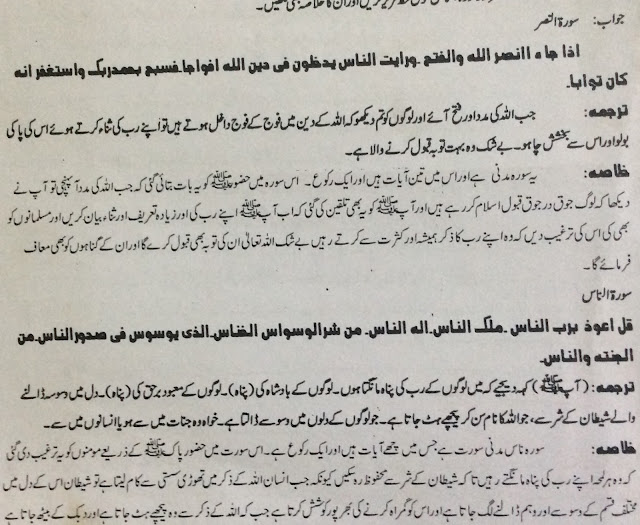 جواب: سورۃ النصر
اذا جاء انصر الله والفتح ۔ ورایت الناس یدخلون فی دین الله افواجا۔ فسبح بحمدربک واستغفر انه
کان توابا۔
ترجمه: جب اللہ کی مدد اور فتح آئے اور لوگوں کو تم دیکھو کہ اللہ کے دین میں فوج کے فوج داخل ہوتے ہیں تو اپنے رب کی ثناء کرتے ہوئے اس کی پاکی
بولو اور اس سے بخشش چاہو۔ بے شک وہ بہت توبہ قبول کرنے والا ہے۔
خلاصه: یہ سورہ مدنی ہے اور اس میں تین آیات ہیں اور ایک رکوع۔ اس سورہ میں حضورﷺ کو یہ بات بتائی گئی کہ جب اللہ کی مدد آ پہنچی تو آپ نے
دیکھا کہ لوگ جوق در جوق قبول اسلام کر رہے ہیں اور آپﷺ کو یہ بھی تلقین کی گئی کہ اب آپﷺ اپنے رب کی اور زیادہ تعریف اور ثناء بیان کریں اور مسلمانوں کو
بھی کی اس کی ترغیب دیں کہ وہ اپنے رب کا ذکر ہمیشہ اور کثرت سے کرتے رہیں بے شک اللہ تعالیٰ ان کی توبہ بھی قبول کرے گا اور ان کے گناہوں کو بھی معاف
فرمائے گا۔
سورۃ الناس
قل اعوذ برب الناس ۔ ملک الناس۔ اله الناس۔ من شرالوسواس الخناس۔ الذی یوسوس فی صدورالناس۔ من
الجنته والناس۔
ترجمه: (آپﷺ) کہہ دیجیے کہ میں لوگوں کے رب کی پناہ مانگتا ہوں۔ لوگوں کے بادشاہ کی (پناہ)۔ لوگوں کے معبود برحق کی (پناہ)۔ دل میں وسوسہ ڈالنے
والے شیطان کے شر سے، جو اللہ کا نام سن کر پیچھے ہٹ جاتا ہے۔ جو لوگوں کے دلوں میں وسوسے ڈالتا ہے۔ خواہ وہ جنات میں سے ہو یا انسانوں میں سے۔
خلاصه: سورہ ناس مدنی سورت ہے جس میں چھے آیات ہیں اور ایک رکوع ہے۔ اس سورت میں حضور پاکﷺ کے ذریعے مومنوں کو یہ ترغیب دی گئی
کہ وہ ہر لمحہ اپنے رب کی پناہ مانگتے رہیں تا کہ شیطان کے شر سے محفوظ رہ سکیں کیونکہ جب انسان اللہ کے ذکر میں تھوڑی سستی سے کام لیتا ہے تو شیطان اس کے دل میں
مختلف قسم کے وسوسے اور وہم ڈالنے لگ جاتا ہے اور اس کو گمراہ کرنے کی بھرپور کوشش کرتا ہے جب کہ اللہ کے ذکر سے وہ پیچھے ہٹ جاتا ہے اور دبک کے بیٹھ جاتا ہے